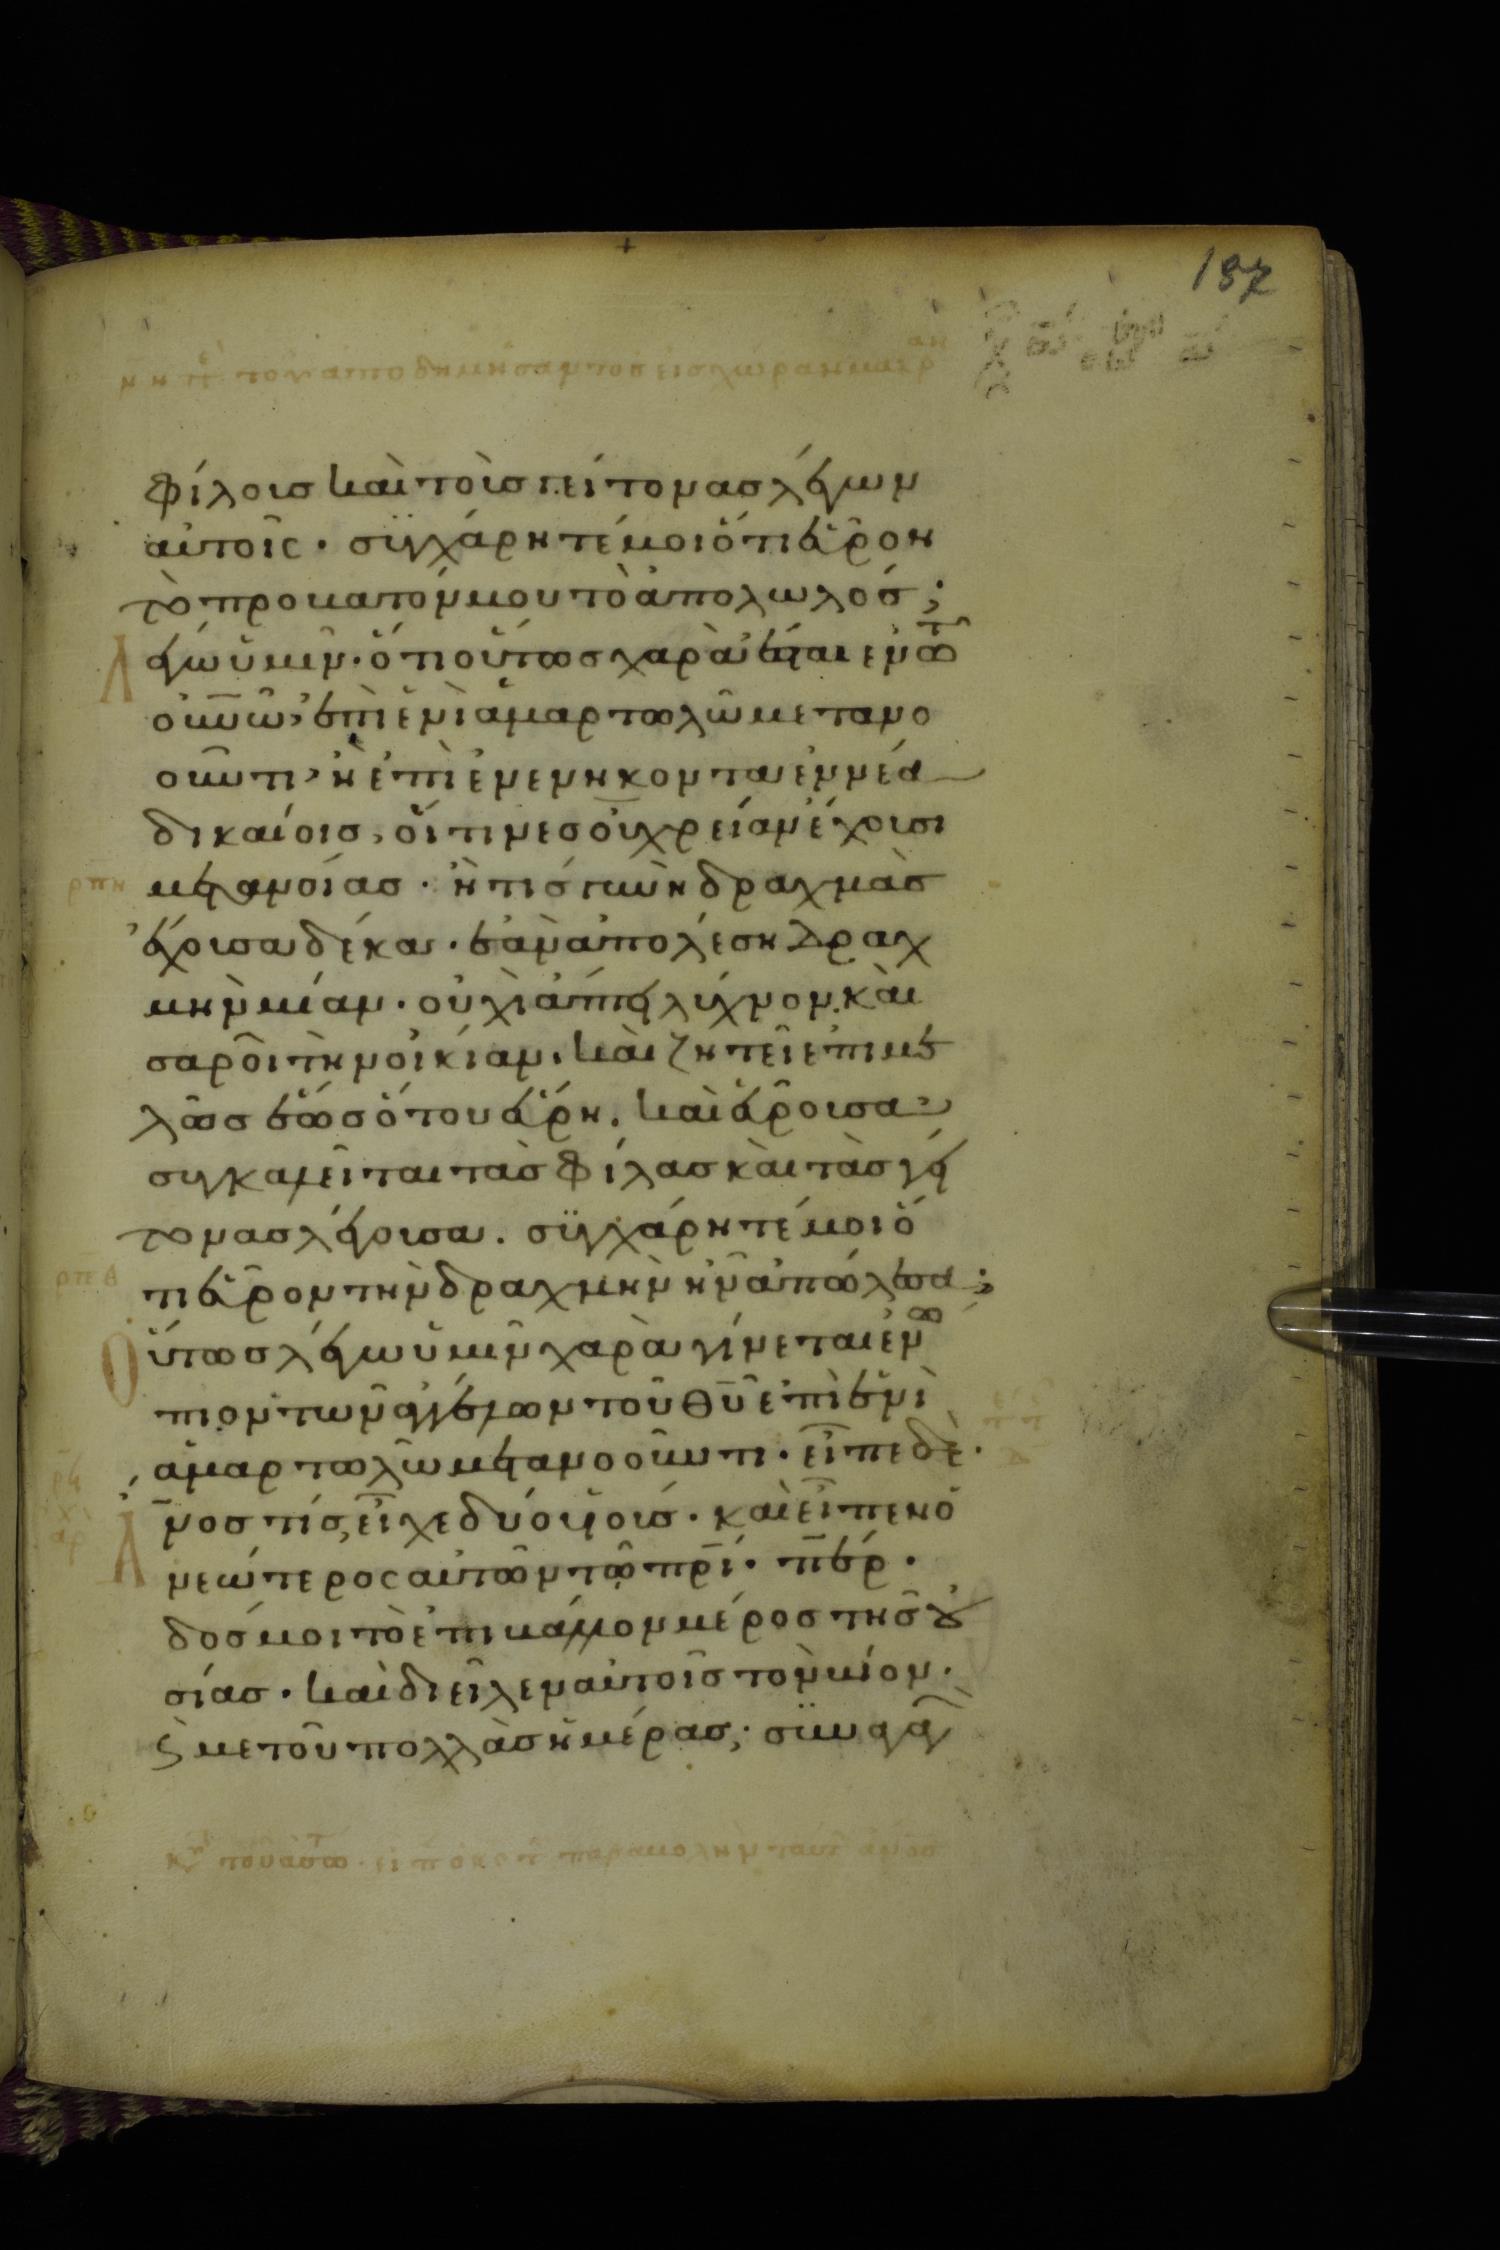 187
φίλοισ καὶ τοὶσ γείτονασ λέγων
αὐτοῖς · συγχάρητέ μοι ὅτι εὗρον
τὸ πρόβατόν μου τὸ ἀπολωλόσ ·
Λέγω ὑμῖν · ὅτι οὕτωσ χαρὰ ἔσται ἐν τῶ
οὐνῶ, ἐπὶ ἑνὶ ἁμαρτωλῶ μετανο
οῦντι, ἢ ἐπὶ ἐνενηκονταεννέα
δικαίοισ, οἵτινεσ οὐ χρείαν ἔχουσι
ρπη μετανοίασ · ἢ τίσ γυνὴ δραχμὰσ
ἔχουσα δέκα · ἐὰν ἀπολέση δραχ
μὴν μίαν · οὐχὶ ἅπτει λύχνον καὶ
σαροῖ τὴν οἰκίαν, καὶ ζητεῖ ἐπιμε
λῶσ ἕωσ ὅτου εὕρη. καὶ εὑροῦσα
συγκαλεῖται τὰσ φίλασ καὶ τὰσ γεί
τονασ λέγουσα. συγχάρητέ μοι ὅ
τι εὗρον τὴν δραχμὴν ἣν ἀπώλεσα ·
Οὕτωσ λέγω ὑμῖν χαρὰ γίνεται ἐνώ
πιον τῶν ἀγγέλων τοῦ θυ ἐπὶ ἑνὶ
ἁμαρτωλῶ μετανοοῦντι · εἶπε δὲ ·
Ἄνοσ τίσ εἶχε δύο υἱούσ · καὶ εἶπεν ὁ
νεώτερος αὐτῶν τῶ πρί · περ ·
δόσ μοι τὸ ἐπιβάλλον μέροσ τῆσ οὐ
σίασ · καὶ διεῖλεν αὐτοῖσ τὸν βίον ·
ϛ μετ οὐ πολλὰσ ἡμέρασ · συναγαγὼν